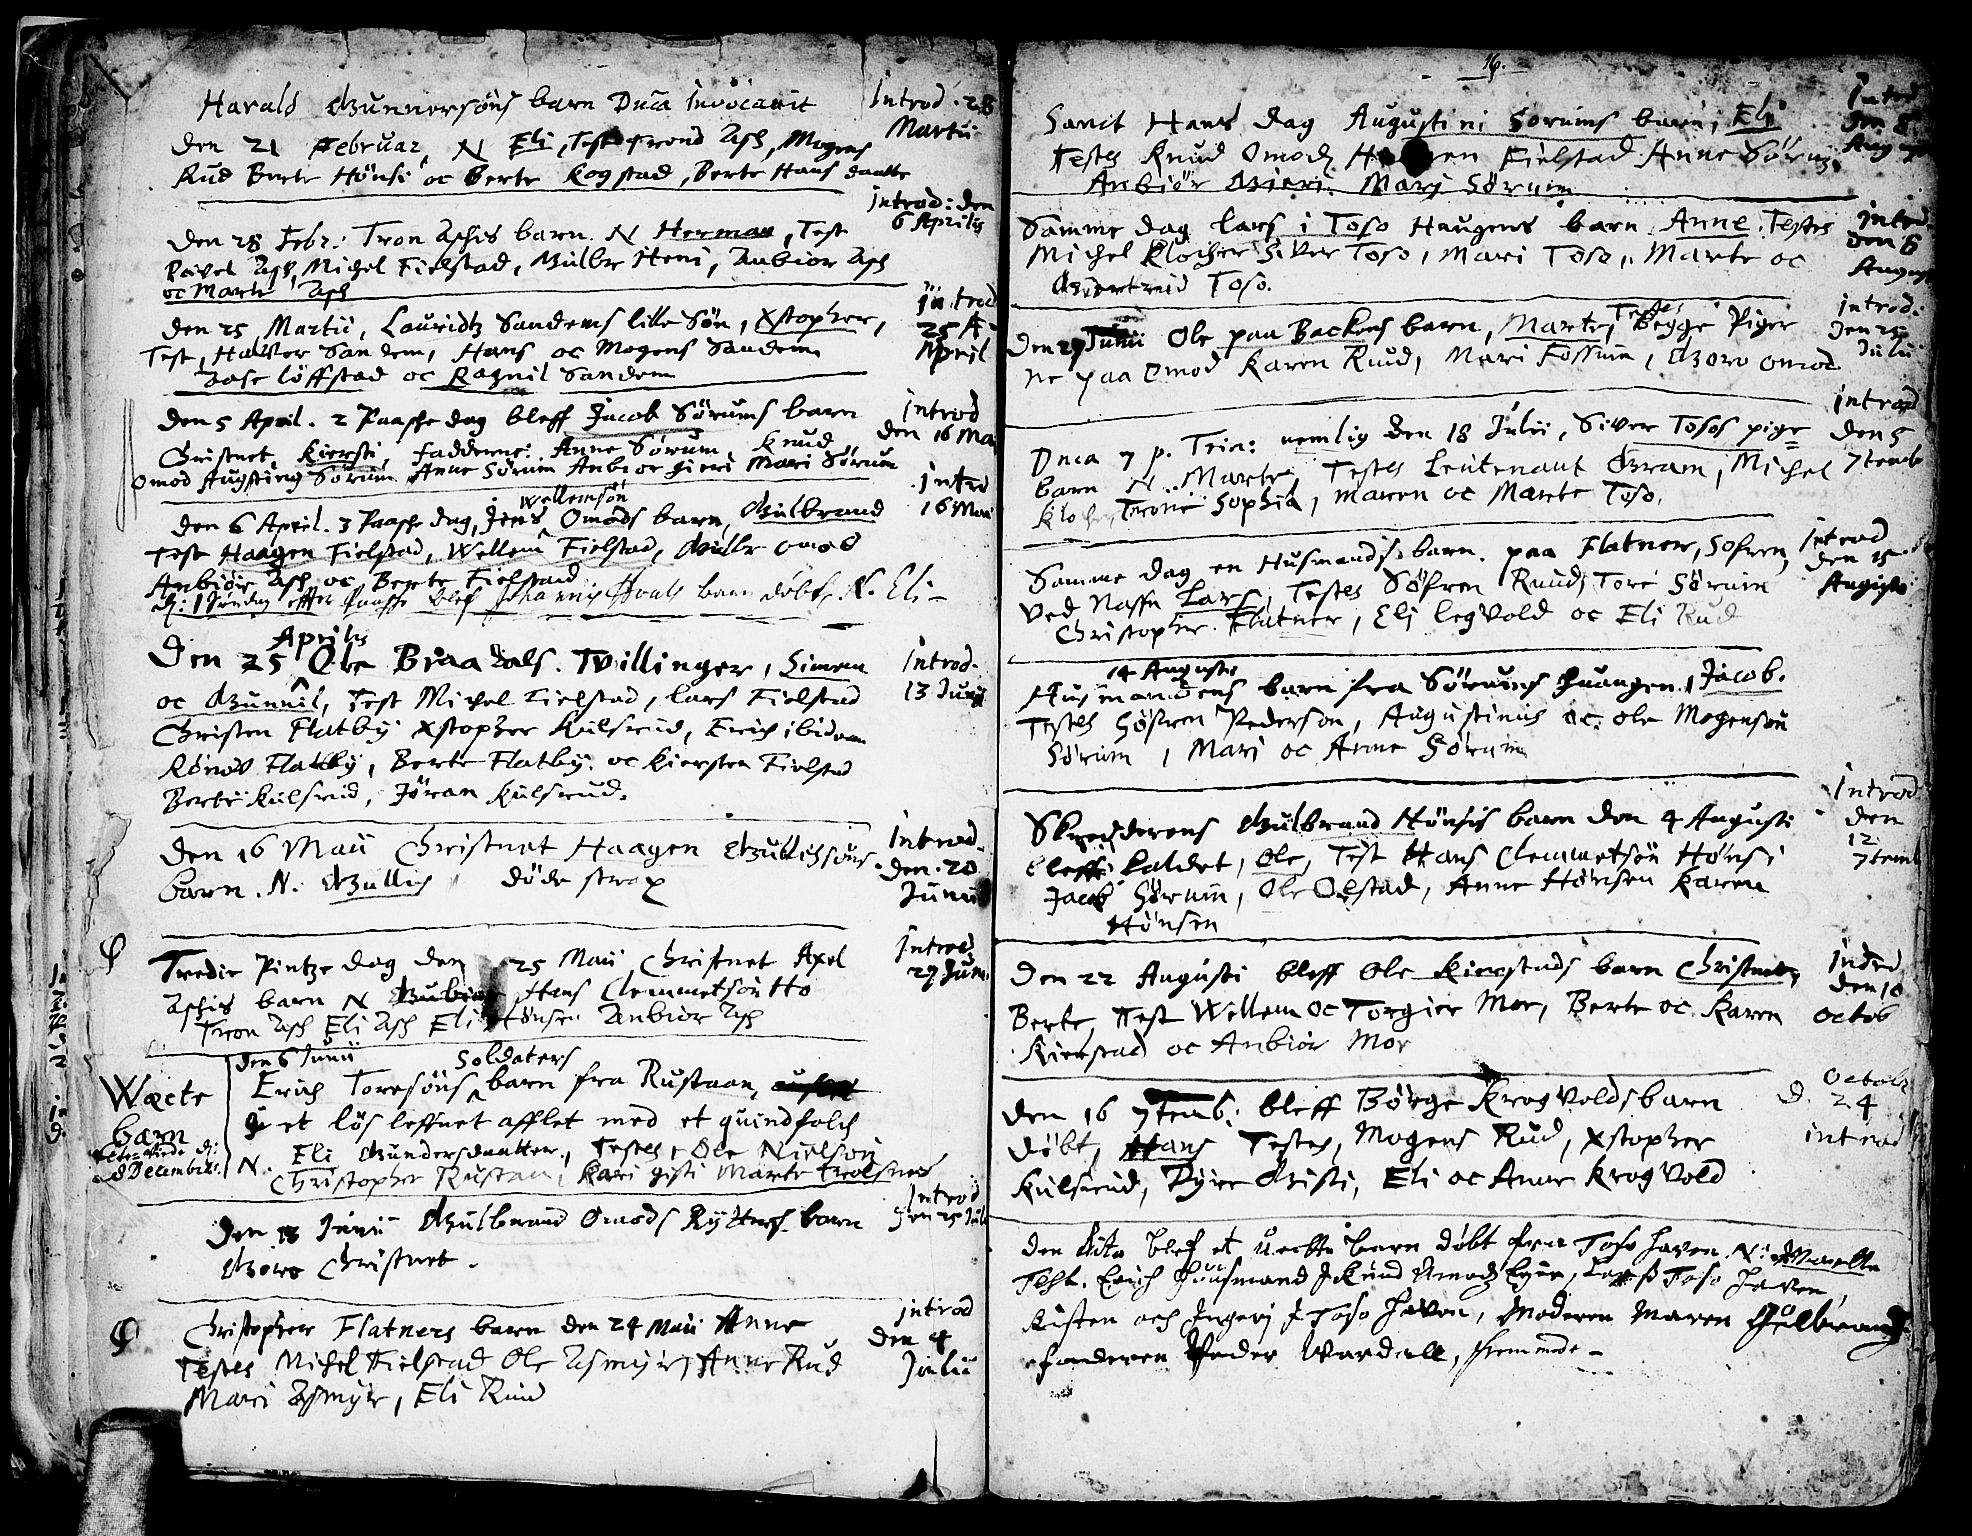 Harald Gunnersøns barn Dnca Invocavit
Introd. 28
Martii
den 21 Februar N Eli, Test Trond Asch, Mogens
Rud Berte Hönsi oc Berte Kogstad, Berte Hans daatter
introd: den
6 Aprilis
Den 28 Febr: Tron Aschis barn N Herman, Test
Povel Asch, Michel Fielstad, Gulbr Heni, Anbior Asch
oc Marte Asch
introd
25 A
April
den 25 Martii, Lauridtz Sandems lille Søn, Xstopher,
Test, Halvor Sandem, Hans oc Mogens Sandem
Aase löffstad oc Ragnil Sandem
den 5 April. 2 Paasche dag bleff Jacob Sørums barn
Christnet Kiersti, fadderne: Anne Sørum, Knud
Omod Augstinus Sørum Anne Sørum Anbior gieri Mari Sørum
introd
den 16 Maii
Wellemsön
den 6 April. 3 Paasche dag, Jens Omods barn, Gulbrand
Test Haagen Fielstad, Wellem Fielstad, Gulbr Omod
Anbiör Asch oc Berte Fielstad
introd
16 Maii
d: 1 Søndag effter Paasche blef Johannis barn döbt, N. Eli
Aprilis
Den 25 Ole Braadals. Tvillinger, Simen
oc Gunnil, Test Michel Fielstad, Lars Fielstad
Christen Flatby Xstopher Kulsrud, Erich ibidem
Rønov Flatby, Berte Flatby oc Kiersten Fielstad
Berte Kulsrud, Jöran Kulsrud.
Introd.
13 Junii
Den 16 Maii Christnet Haagen Gullichsöns
barn. N. Gullich döde strax
Introd.
den 20
Junii
Tredie Pintze dag den 25 Maii Christnet Axel
Aschis barn N Hans Clemmetsön Hö
Tron Asch Eli Asch Eli Hönsen Anbior Asch
Introd
27 Juni
Wecte
barn
8 December
den 6 Junii Soldaters
Erich Toresöns barn fra Rustaan
i et lös leffnet afflet med et quindfolch
N. Eli Gundersdaatter, Testes, Ole Nielsön
Christopher Rustan, Kari gisti Marte Trolsnes
Den 13 Junii Gulbrand Omods Rytters barn
Goro Christnet.
Introd
den 25 Juli
Christopher Flatners barn den 24 Maii Anne
Testes Michel Fielstad Ole Asmyr, Anne Rud
Mari Asmyr, Eli Rud
introd
den 4
Julii
16.
Sanct Hans dag Augustini Sorums barn, Eli
Testes Knud Omod, Fielstad Anne Sörum
Anbiör Gieri. Mari Sørum
Introd
den 8
Aug
Samme dag Lars i Toso Haugens barn Anne. Testes
Michel Klocher Siver Toso, Mari Toso, Marte oc
Toso.
introd
den 8
August
Den 27 Junii Ole paa Backens barn, Marte, Testes Begge Piger
ne paa Omod Karen Ruud, Mari Fossum, Goro Omod
introd:
den 25
Julii
Dnca 7 p. Trin: nemlig den 18 Julii, Siver Tosos pige
barn N. Marte, Testes Leutenant Gram, Michel
Klocher, Sophia, Maren oc Marte Toso.
introd
den 5
7temb
Samme dag en Husmandss barn. paa Flatner, Sofren
ved Naffn Lars, Testes Söfren Ruud, Tore Sørum
Christopher Flatner, Eli legvold oc Eli Rud
Introd
den 15
Augusti
14 Augusti
Husmandens barn fra Sørums huangen, Jacob.
Testes Söfren Pederson, Augustinus oc Ole Mogenson
Sørum, Mari oc Anne Sörum
Skredderens Gulbrand Hönsis barn den 4 Augusti
bleff kaldet, Ole, Test Hans Clemmetsön Hönsi
Jacob Sørum, Ole Olstad, Anne Hønsen Karen
Hönsen
Introd
den
12
7temb
Den 22 Augusti bleff Ole Kierstads barn Christnet
Berte, Test Wellem Oc Torgier Mor, Berte oc Karen
Kierstad oc Anbiör Mor
Introd
den 10
octob
den 16 7temb: bleff Börge Krogvolds barn
döbt, Hans Testes, Mogens Rud, Xstopher
Kulsrud, Gisti, Eli oc Anne Krogvold
d. Octob
24
introd
den dito blef et uechte barn döbt fra Toso haven N:
Test. Erich Huusmand Toso haven,
Kisten och Ingerj I Toso haven, Moderen Maren
faderen Peder Wardall, fremmede